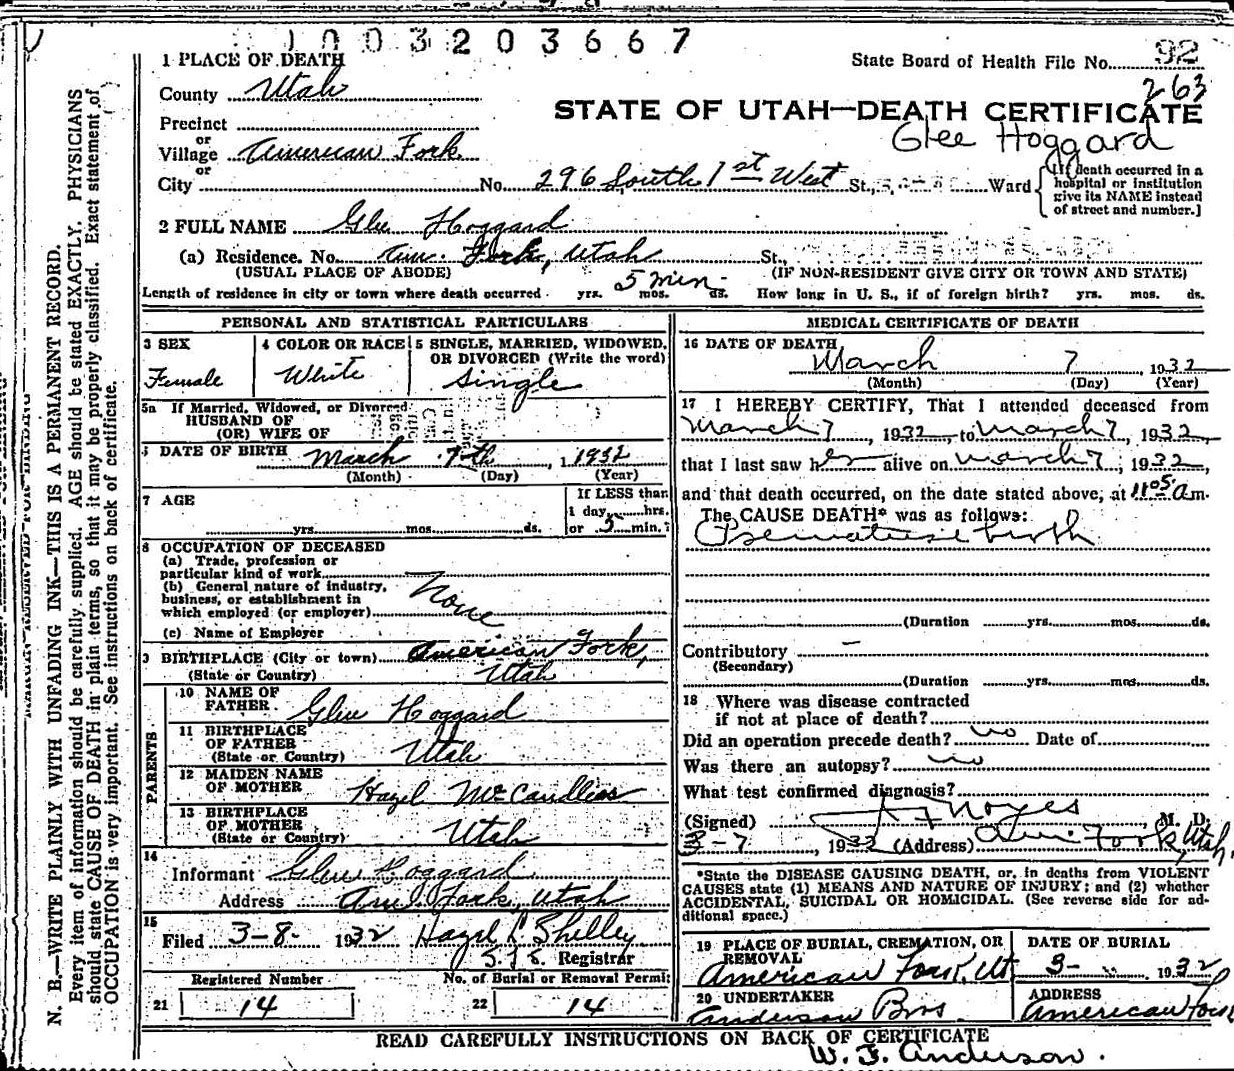 1003203667
1 PLACE OF DEATH
State Board of Health File No. 92
263
County Utah
STATE OF UTAH—DEATH CERTIFICATE
Glee Hoggard
Precinct
or
Village American Fork
or
City No. 296 South 1st West St., Ward
(If death occurred in a
hospital or institution
give its NAME instead
of street and number.]
2 FULL NAME Glee Hoggard
(a) Residence. No. Am. Fork, Utah St.,
(USUAL PLACE OF ABODE) (IF NON-RESIDENT GIVE CITY OR TOWN AND STATE)
Length of residence in city or town where death occurred yrs. mos. 5 min. ds. How long in U. S., if of foreign birth? yrs. mos. ds.
PERSONAL AND STATISTICAL PARTICULARS
3 SEX
Female
4 COLOR OR RACE
White
5 SINGLE, MARRIED, WIDOWED,
OR DIVORCED (Write the word)
Single
5a If Married, Widowed, or Divorced
HUSBAND OF
(OR) WIFE OF
DATE OF BIRTH March 7th, 1932
(Month) (Day) (Year)
7 AGE
yrs. mos. ds.
If LESS than
1 day, hrs.
or 5 min.?
8 OCCUPATION OF DECEASED
(a) Trade, profession or
particular kind of work
(b) General nature of industry,
business, or establishment in
which employed (or employer)
None
(c) Name of Employer
9 BIRTHPLACE (City or town) American Fork,
(State or Country) Utah
PARENTS
10 NAME OF
FATHER Glen Hoggard
11 BIRTHPLACE
OF FATHER
(State or Country) Utah
12 MAIDEN NAME
OF MOTHER Hazel McCandless
13 BIRTHPLACE
OF MOTHER
(State or Country) Utah
14
Informant Glen Hoggard
Address Am. Fork, Utah
15
Filed 3-8- 1932 Hazel L. Shelley
Registrar
Registered Number
21 14
No. of Burial or Removal Permit
22 14
MEDICAL CERTIFICATE OF DEATH
16 DATE OF DEATH
March 7, 1932
(Month) (Day) (Year)
17 I HEREBY CERTIFY, That I attended deceased from
March 7, 1932, to March 7, 1932,
that I last saw her alive on March 7, 1932,
and that death occurred, on the date stated above, at 11:05 am.
The CAUSE DEATH* was as follows:
Premature birth
(Duration yrs. mos. ds.
Contributory —
(Secondary)
(Duration yrs. mos. ds.
18 Where was disease contracted
if not at place of death?
Did an operation precede death? no Date of
Was there an autopsy? no
What test confirmed diagnosis?
(Signed) Noyes, M. D.
3-7, 1932 (Address) Am Fork, Utah.
*State the DISEASE CAUSING DEATH, or, in deaths from VIOLENT
CAUSES state (1) MEANS AND NATURE OF INJURY; and (2) whether
ACCIDENTAL, SUICIDAL OR HOMICIDAL. (See reverse side for ad-
ditional space.)
19 PLACE OF BURIAL, CREMATION, OR
REMOVAL
American Fork, Ut
DATE OF BURIAL
3- , 1932
20 UNDERTAKER
Anderson Bros.
ADDRESS
American Fork
READ CAREFULLY INSTRUCTIONS ON BACK OF CERTIFICATE
W. F. Anderson.
N. B.—WRITE PLAINLY WITH UNFADING INK—THIS IS A PERMANENT RECORD.
Every item of information should be carefully supplied. AGE should be stated EXACTLY. PHYSICIANS
should state CAUSE OF DEATH in plain terms, so that it may be properly classified. Exact statement of
OCCUPATION is very important. See instructions on back of certificate.